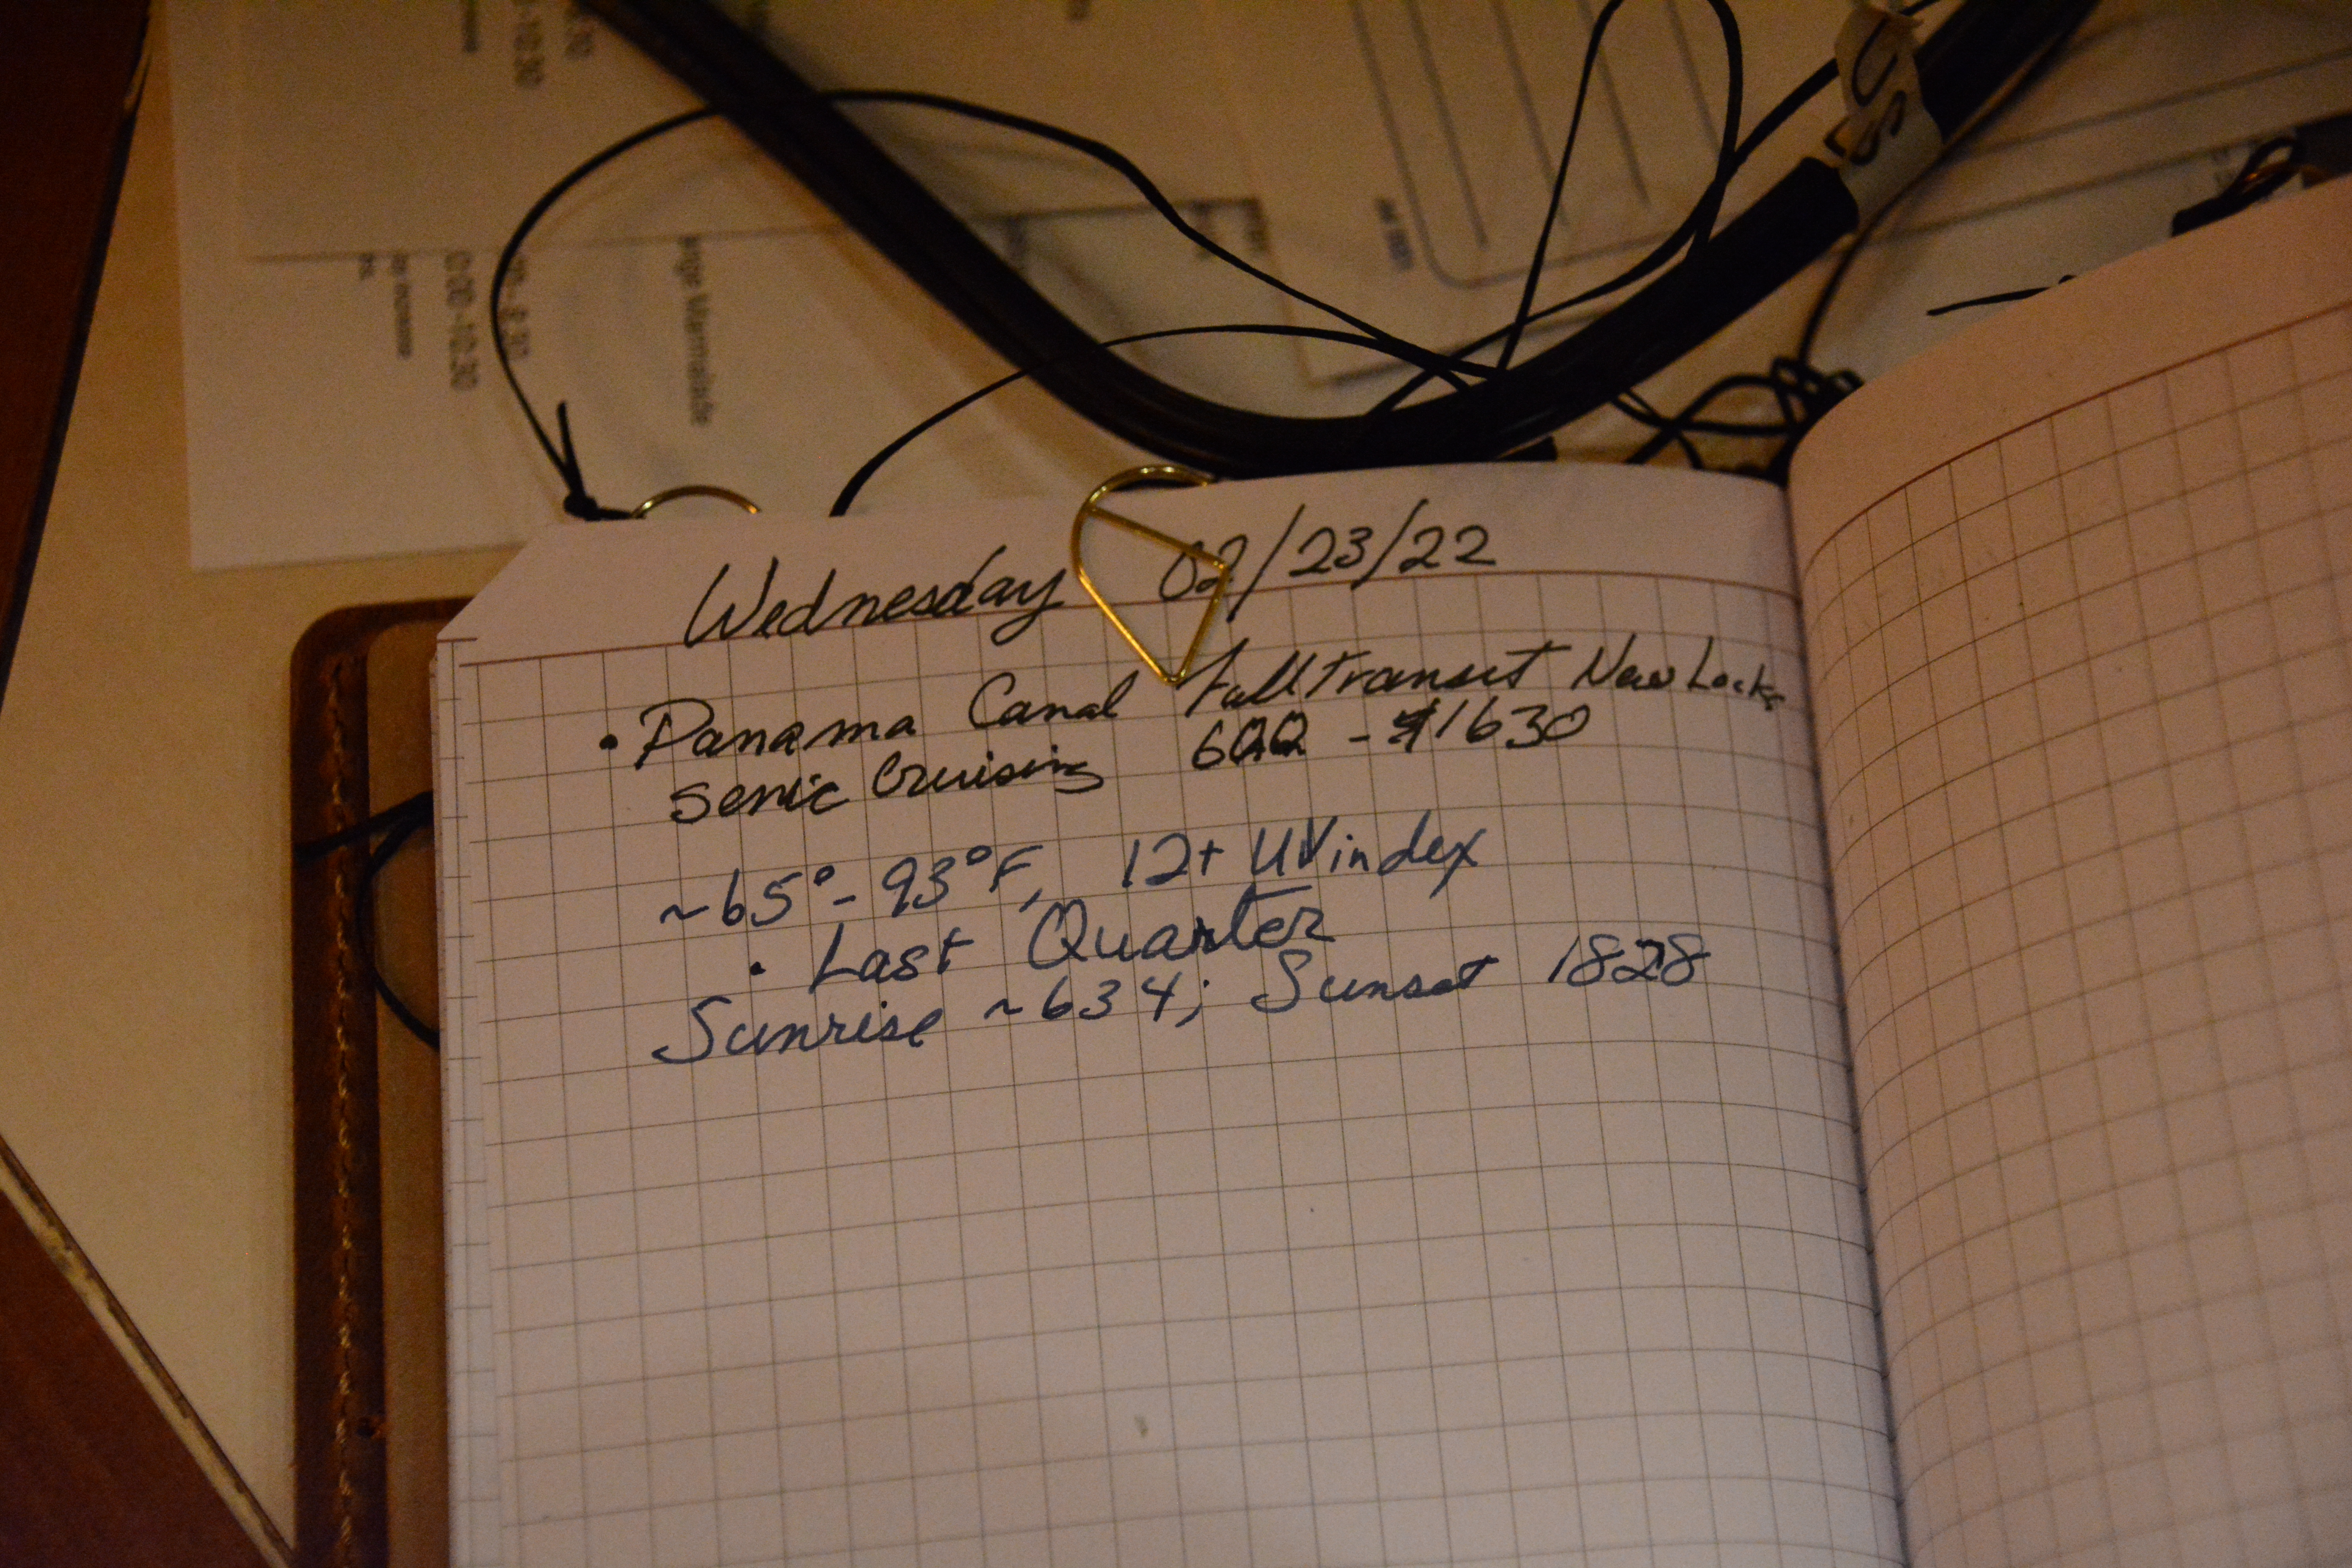 Wednesday 02/23/22
• Panama Canal Full Transit New Locks
Senic Cruising 600 - 1630
~65° - 93°F, 12+ UV index
• Last Quarter
Sunrise ~634; Sunset 1828
US
0:00-10:30